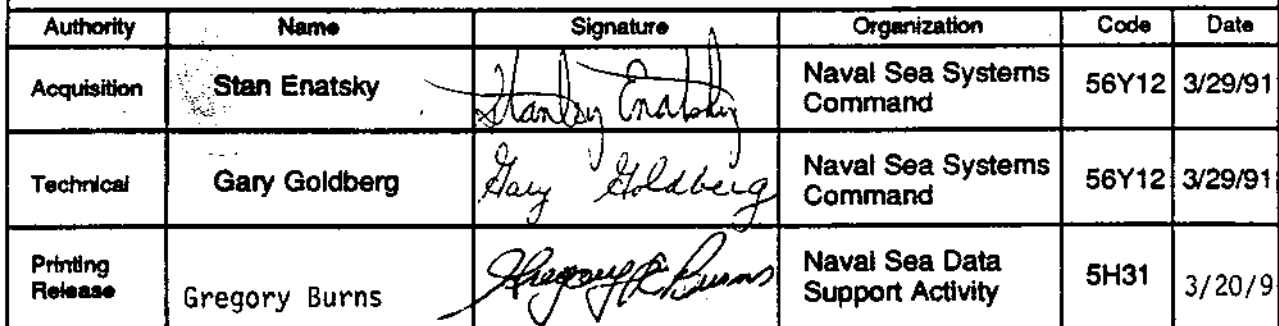 Authority Name Signature Organization Code Date
Acquisition Stan Enatsky Stanley Enatsky Naval Sea Systems Command 56Y12 3/29/91
Technical Gary Goldberg Gary Goldberg Naval Sea Systems Command 56Y12 3/29/91
Printing Release Gregory Burns Gregory R Burns Naval Sea Data Support Activity 5H31 3/20/9